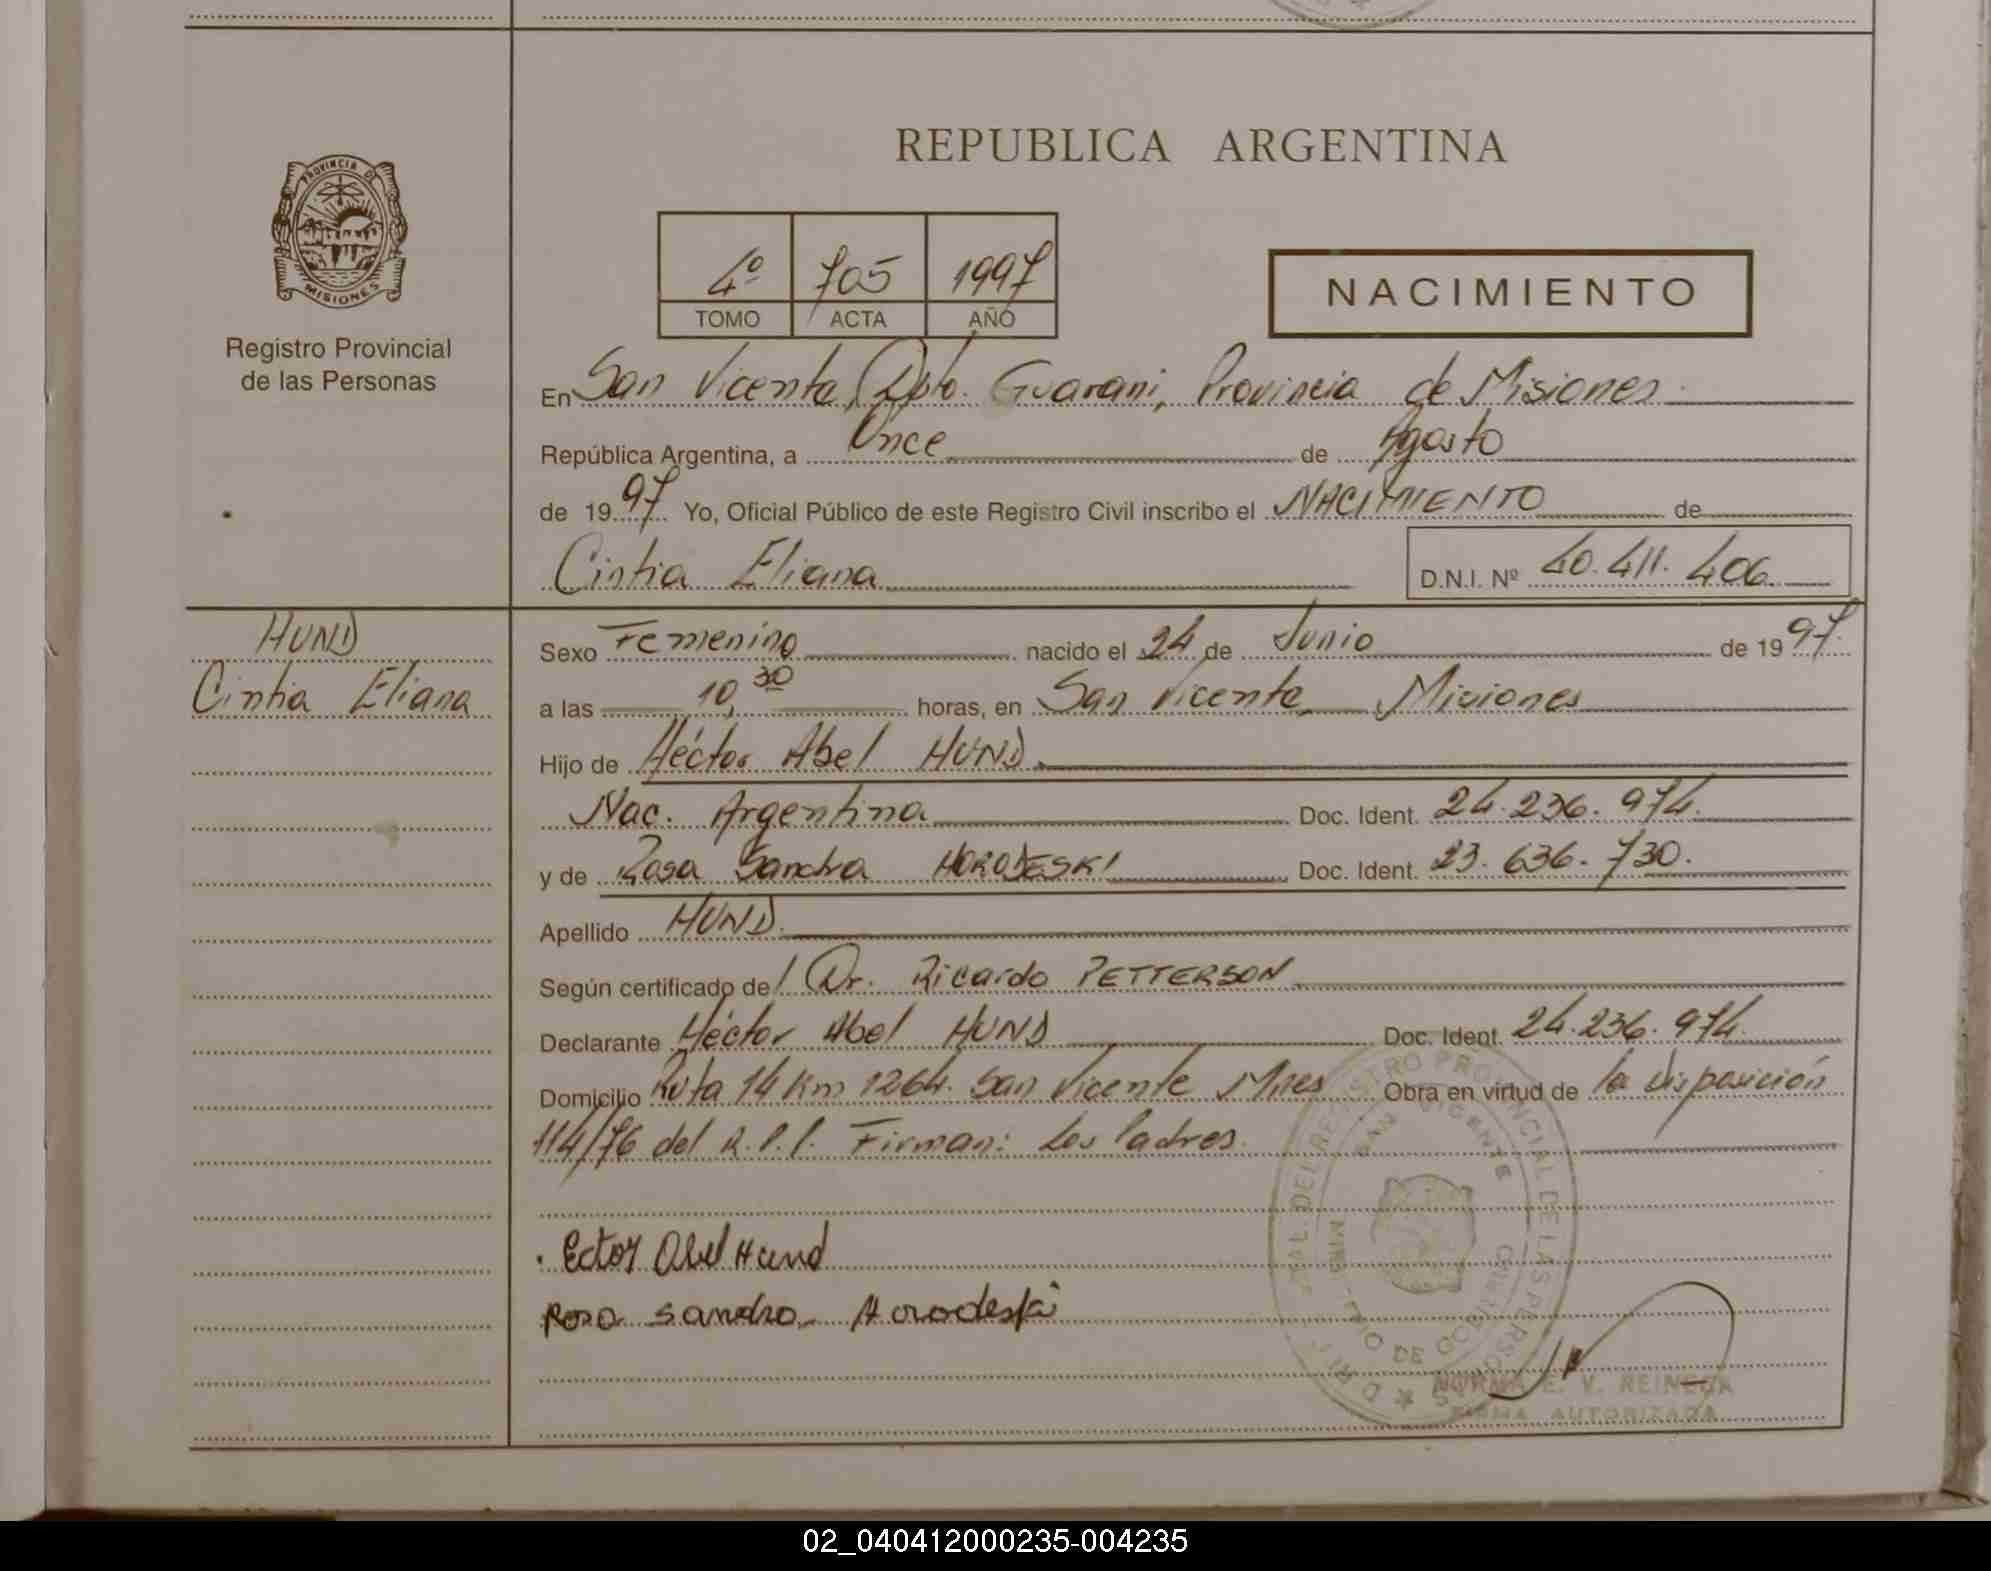 REPUBLICA ARGENTINA
PROVINCIA DE
MISIONES
Registro Provincial
de las Personas
4º 705 1997
TOMO ACTA AÑO
NACIMIENTO
En San Vicente, Dpto. Guarani, Provincia de Misiones.
República Argentina, a Once de Agosto
de 1997 Yo, Oficial Público de este Registro Civil inscribo el NACIMIENTO de
Cintia Eliana D.N.I. Nº 40.411.406
HUND
Cintia Eliana
Sexo Femenino nacido el 24 de Junio de 1997.
a las 10,30 horas, en San Vicente Misiones
Hijo de Héctor Abel HUND
Nac. Argentina Doc. Ident. 24.236.974.
y de Rosa Sandra HORODESKI Doc. Ident. 23.636.730.
Apellido HUND.
Según certificado de Dr. Ricardo PETTERSON
Declarante Héctor Abel HUND Doc. Ident. 24.236.974.
Domicilio Ruta 14 Km 1264. San Vicente Mnes Obra en virtud de la disposición
114/76 del R.P.P. Firman: Los Padres.
Ector Abel Hund
Rosa Sandra Horodeski
DEL REGISTRO PROVINCIAL DE LAS PERSONAS
SAN VICENTE
NORMA E. V. REINECK
FIRMA AUTORIZADA
02_040412000235-004235